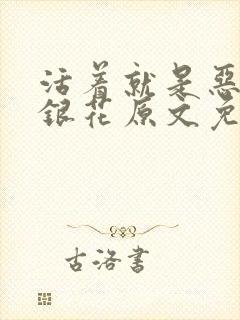 活着就是恶
银花原文免
古洛書